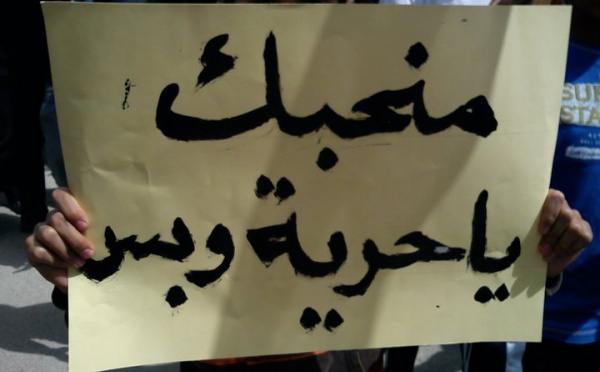 منحبك
يا حرية وبس
SUP
STA